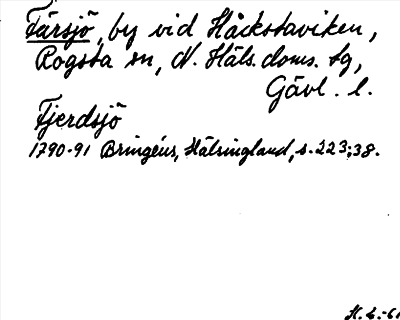 Färsjö, by vid Håckstaviken,
Rogsta sn, N. Häls. doms. tg,
Gävl. l.
Fjerdsjö
1790-91 Bringéus, Hälsingland, s. 223; 38.
H. L.-61